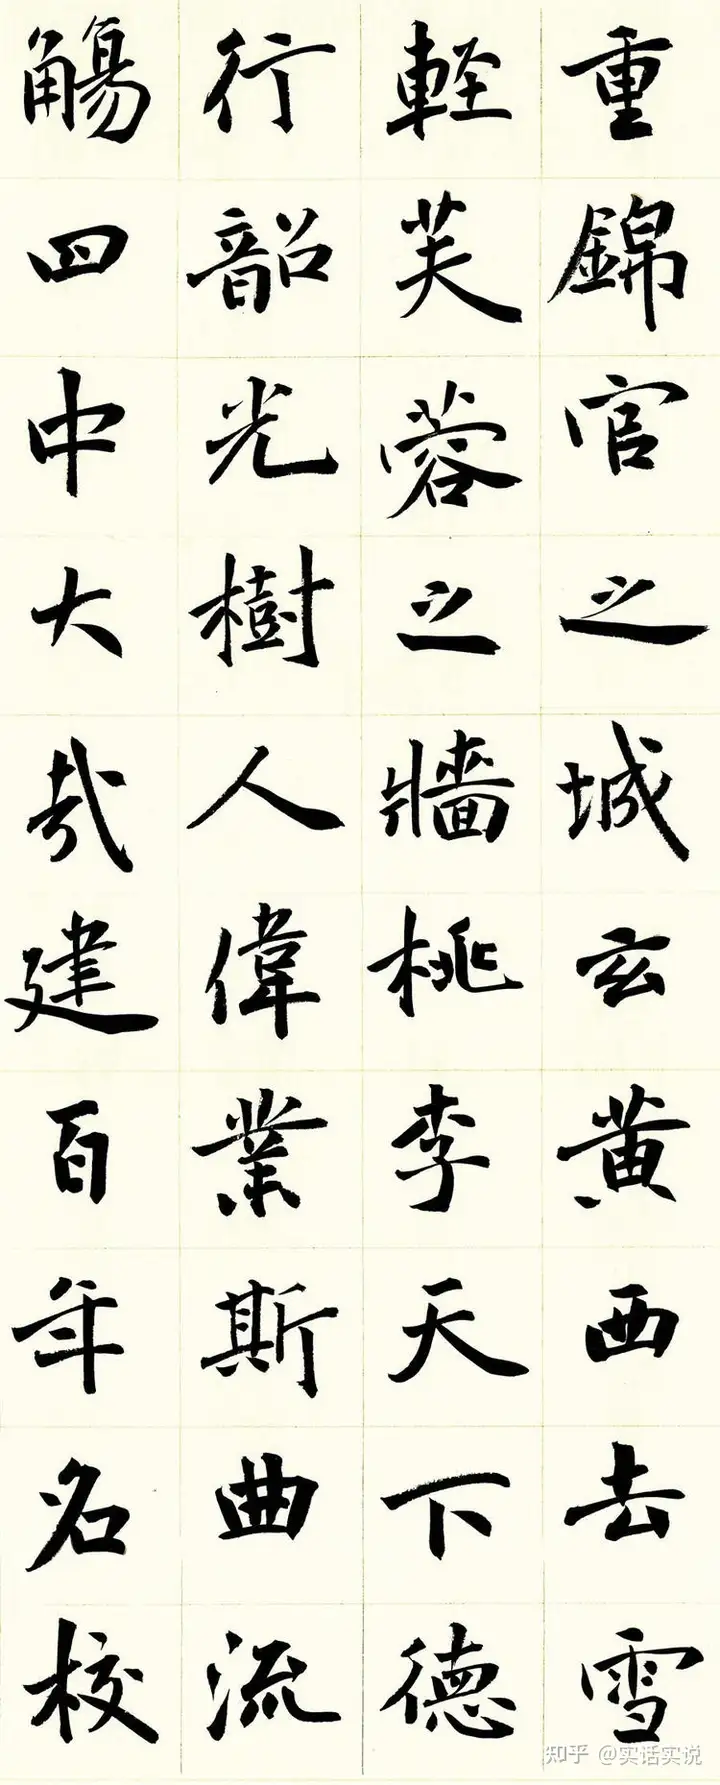 重錦官之城玄黄西去雪
輕芙蓉之牆桃李天下德
行韶光樹人偉業斯曲流
觴四中大哉建百年名校
知乎 @实话实说